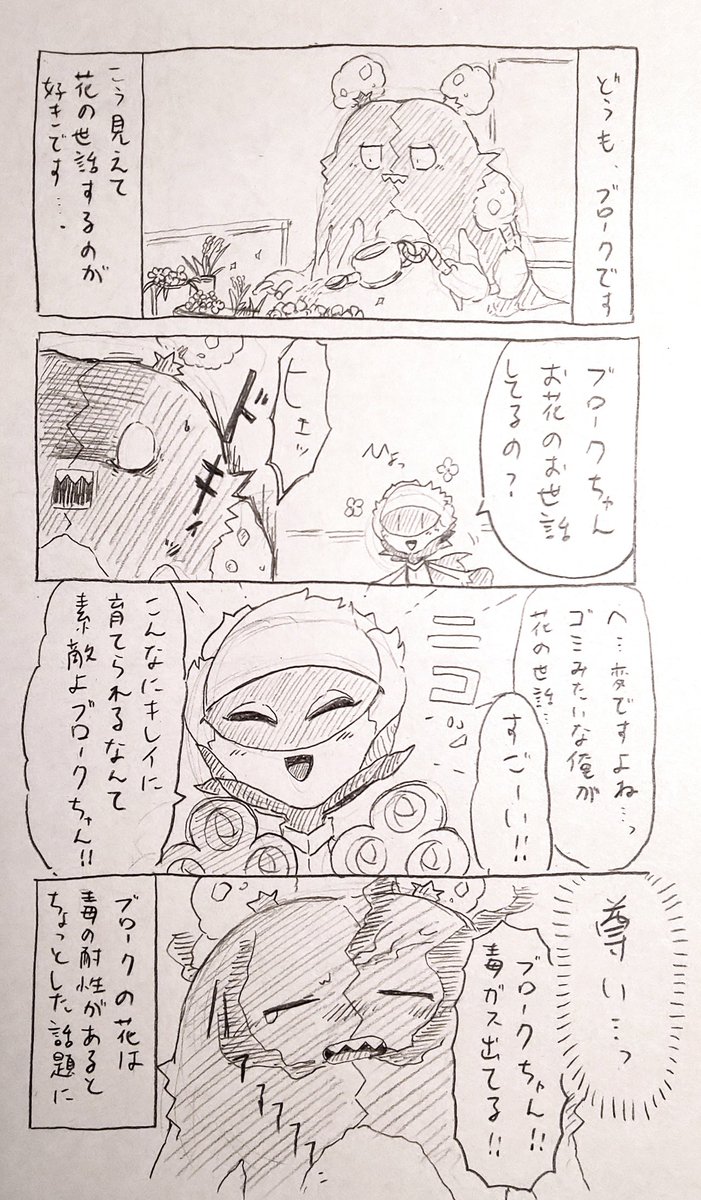 どうも、ブロークです
こう見えて
花の世話するのが
好きです…。
ブロークちゃん
お花のお世話
してるの？
ひょっ
ヒェッ
ドキィ
へ…変ですよね…っ
ゴミみたいな俺が
花の世話…
すごーい!!
ニコッ
こんなにキレイに
育てられるなんて
素敵よブロークちゃん!!
尊い…っ
ブロークちゃん!!
毒ガス出てる!!
ブロークの花は
毒の耐性があると
ちょっとした話題に